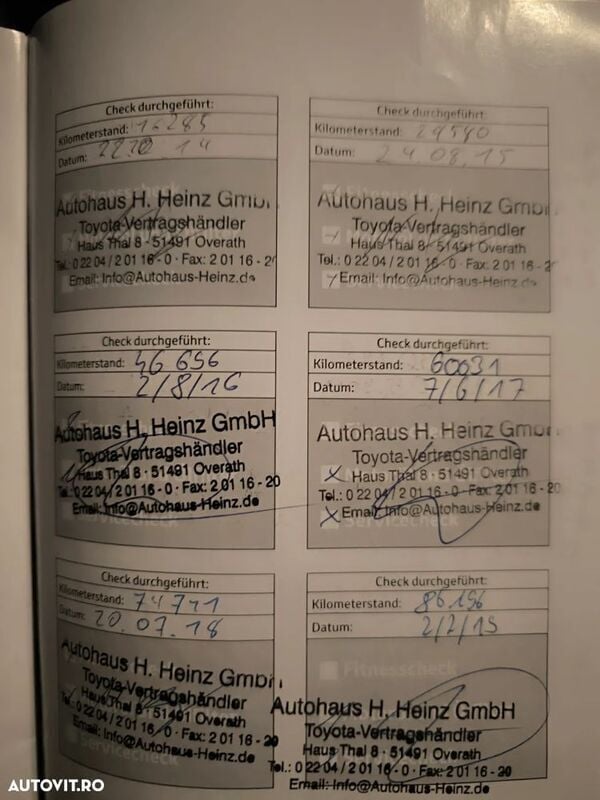 Check durchgeführt:
Kilometerstand: 16285
Datum: 22.10.14
Autohaus H. Heinz GmbH
Toyota-Vertragshändler
Haus Thal 8 · 51491 Overath
Tel.: 0 22 04 / 2 01 16 - 0 · Fax: 2 01 16 - 2
Email: Info@Autohaus-Heinz.de
Check durchgeführt:
Kilometerstand: 29580
Datum: 24 08.15
Autohaus H. Heinz Gmb
Toyota-Vertragshändler
Haus Thal 8 · 51491 Overath
Tel.: 0 22 04 / 2 01 16 - 0 · Fax: 2 01 16 - 2
Email: Info@Autohaus-Heinz.de
Check durchgeführt:
Kilometerstand: 46 656
Datum: 2/8/16
Autohaus H. Heinz GmbH
Toyota-Vertragshändler
Haus Thal 8 · 51491 Overath
Tel.: 0 22 04 / 2 01 16 - 0 · Fax: 2 01 16 - 20
Email: Info@Autohaus-Heinz.de
Check durchgeführt:
Kilometerstand: 60631
Datum: 7/6/17
Autohaus H. Heinz Gmb
Toyota-Vertragshändler
Haus Thal 8 · 51491 Overath
Tel.: 0 22 04 / 2 01 16 - 0 · Fax: 2 01 16 - 20
Email: Info@Autohaus-Heinz.de
Servicecheck
Check durchgeführt:
Kilometerstand: 74741
Datum: 20.07.18
Autohaus H. Heinz GmbH
Toyota-Vertragshändler
Haus Thal 8 · 51491 Overath
Tel.: 0 22 04 / 2 01 16 - 0 · Fax: 2 01 16 - 20
Email: Info@Autohaus-Heinz.de
Servicecheck
Check durchgeführt:
Kilometerstand: 86.156
Datum: 2/7/19
Fitnesscheck
Autohaus H. Heinz GmbH
Toyota-Vertragshändler
Haus Thal 8 · 51491 Overath
Tel.: 0 22 04 / 2 01 16 - 0 · Fax: 2 01 16 - 20
Email: Info@Autohaus-Heinz.de
AUTOVIT.RO